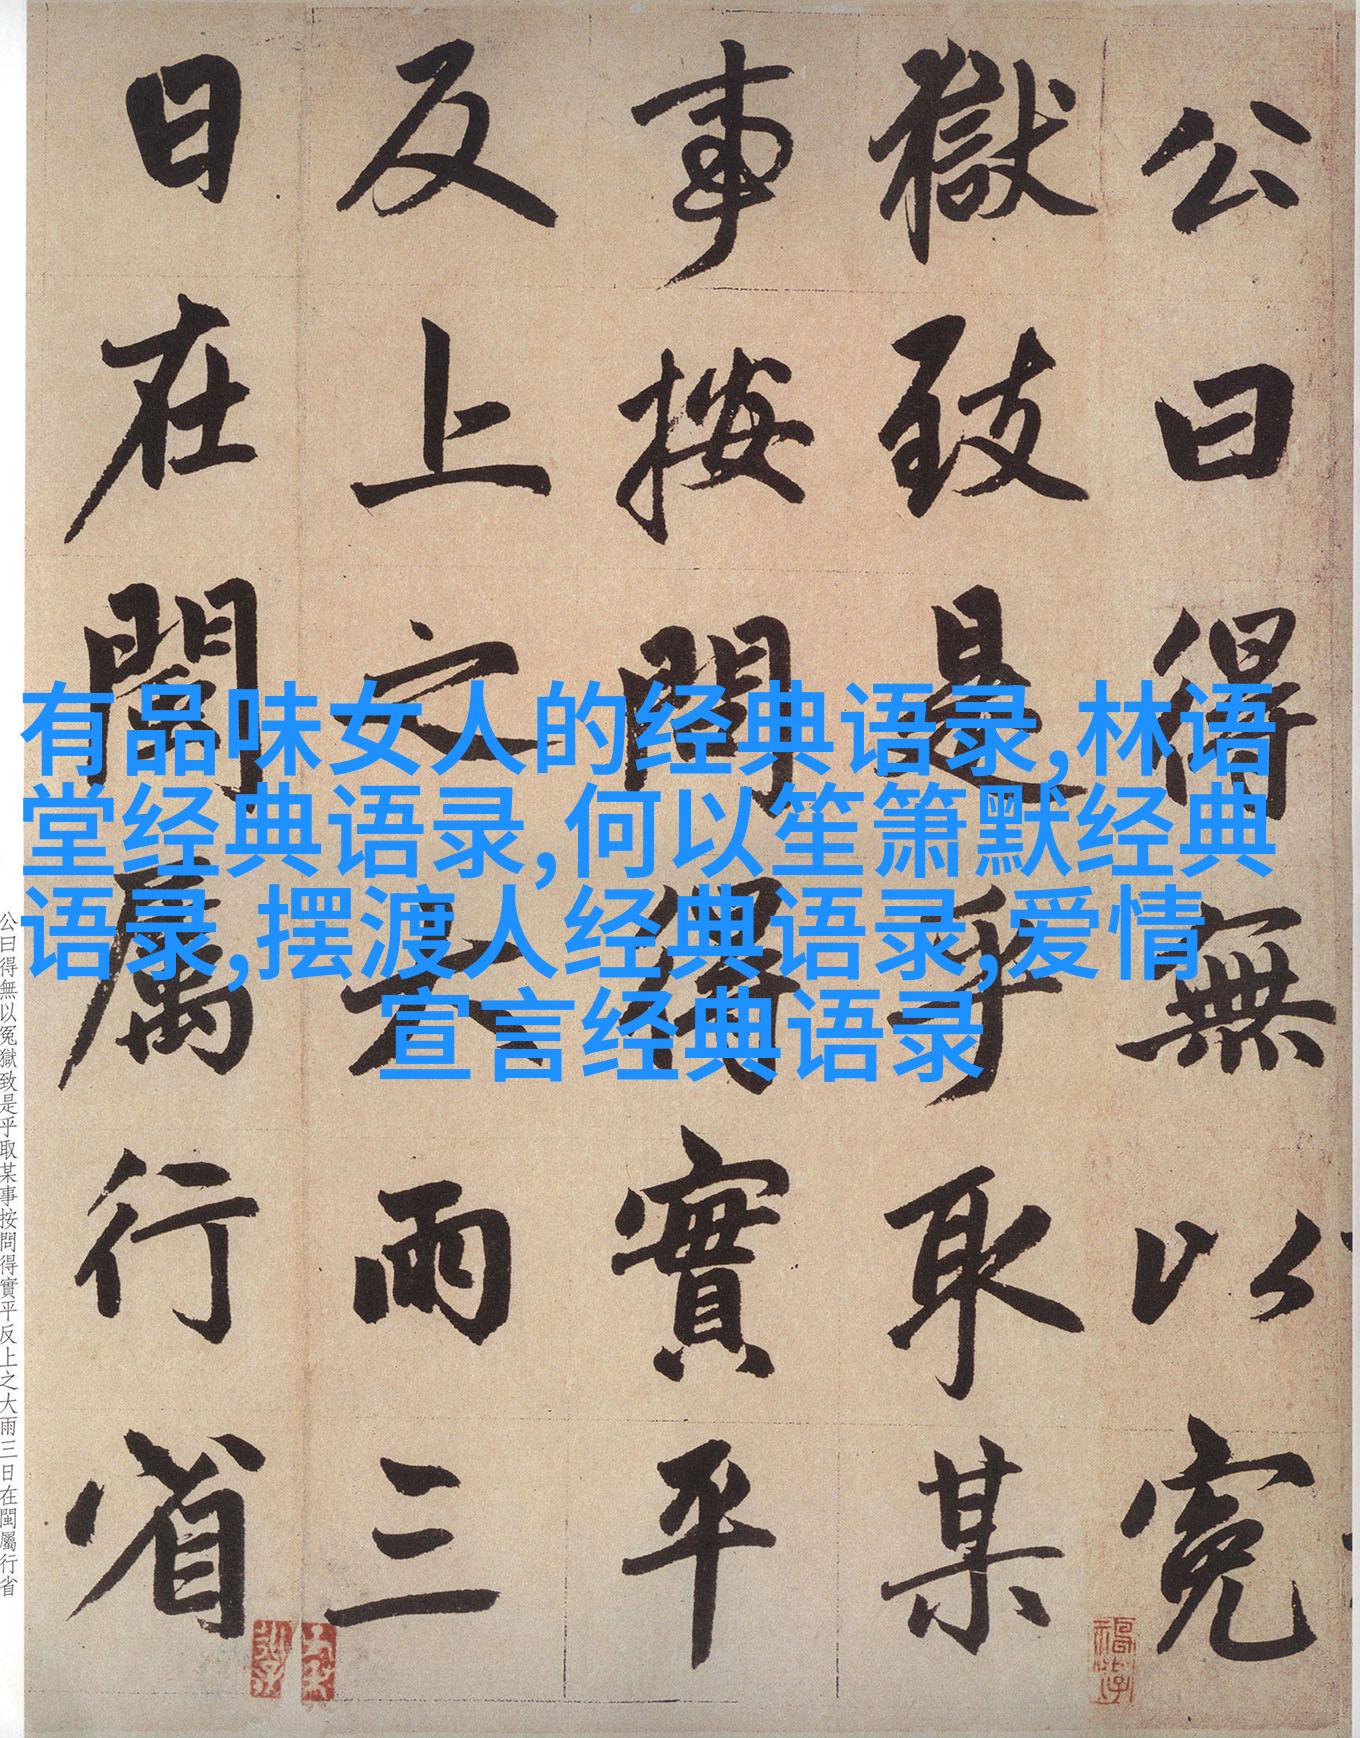 公曰得無以冤
獄致是乎取某
事按問得實平
反上之大雨三
日在閩屬行省
有品味女人的经典语录,林语
堂经典语录,何以笙箫默经典
语录,摆渡人经典语录,爱情
宣言经典语录
公曰得無以冤獄致是乎取某事按問得實平反上之大雨三日在閩屬行省